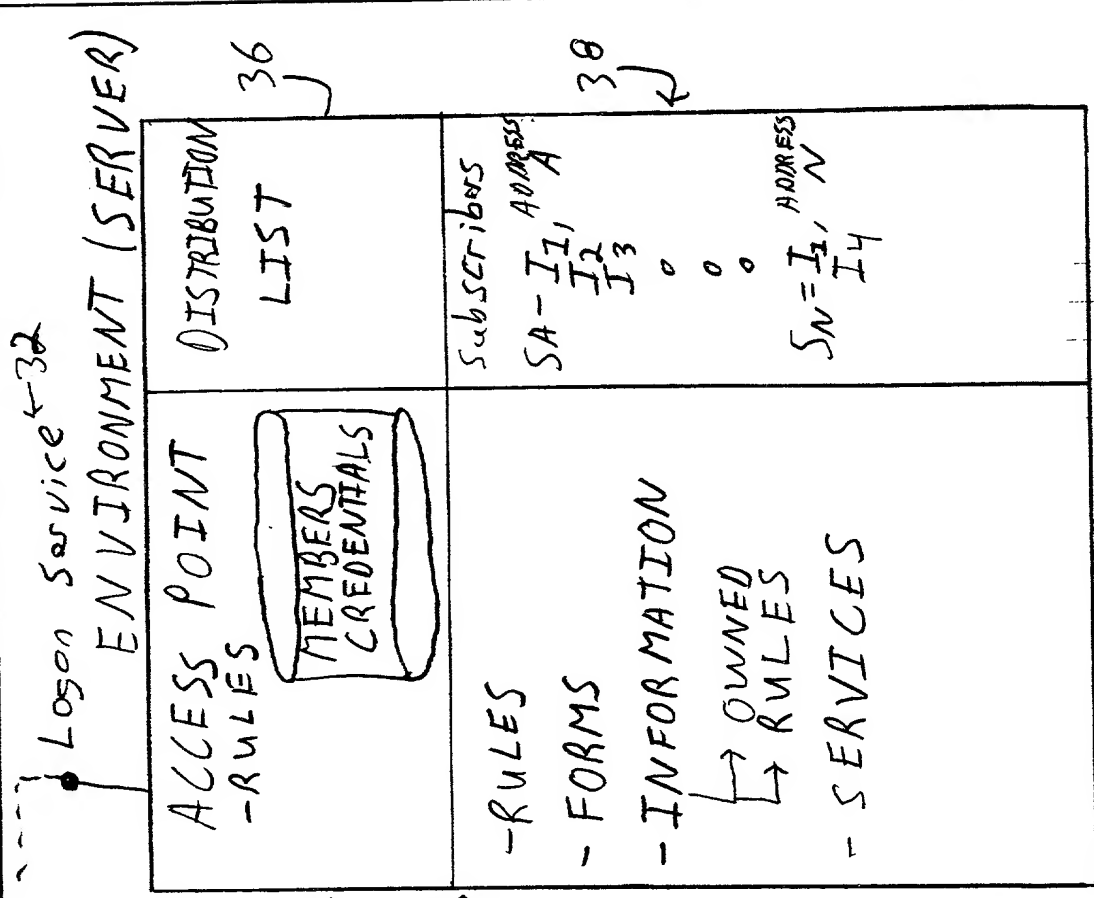 Logon Service ←32
ENVIRONMENT (SERVER)
ACCESS POINT
-RULES
MEMBERS
CREDENTIALS
DISTRIBUTION
LIST
36
-RULES
- FORMS
-INFORMATION
→ OWNED
→ RULES
- SERVICES
Subscribers
SA-I1, ADDRESS A
I2
I3
SN=I1, ADDRESS N
I4
38